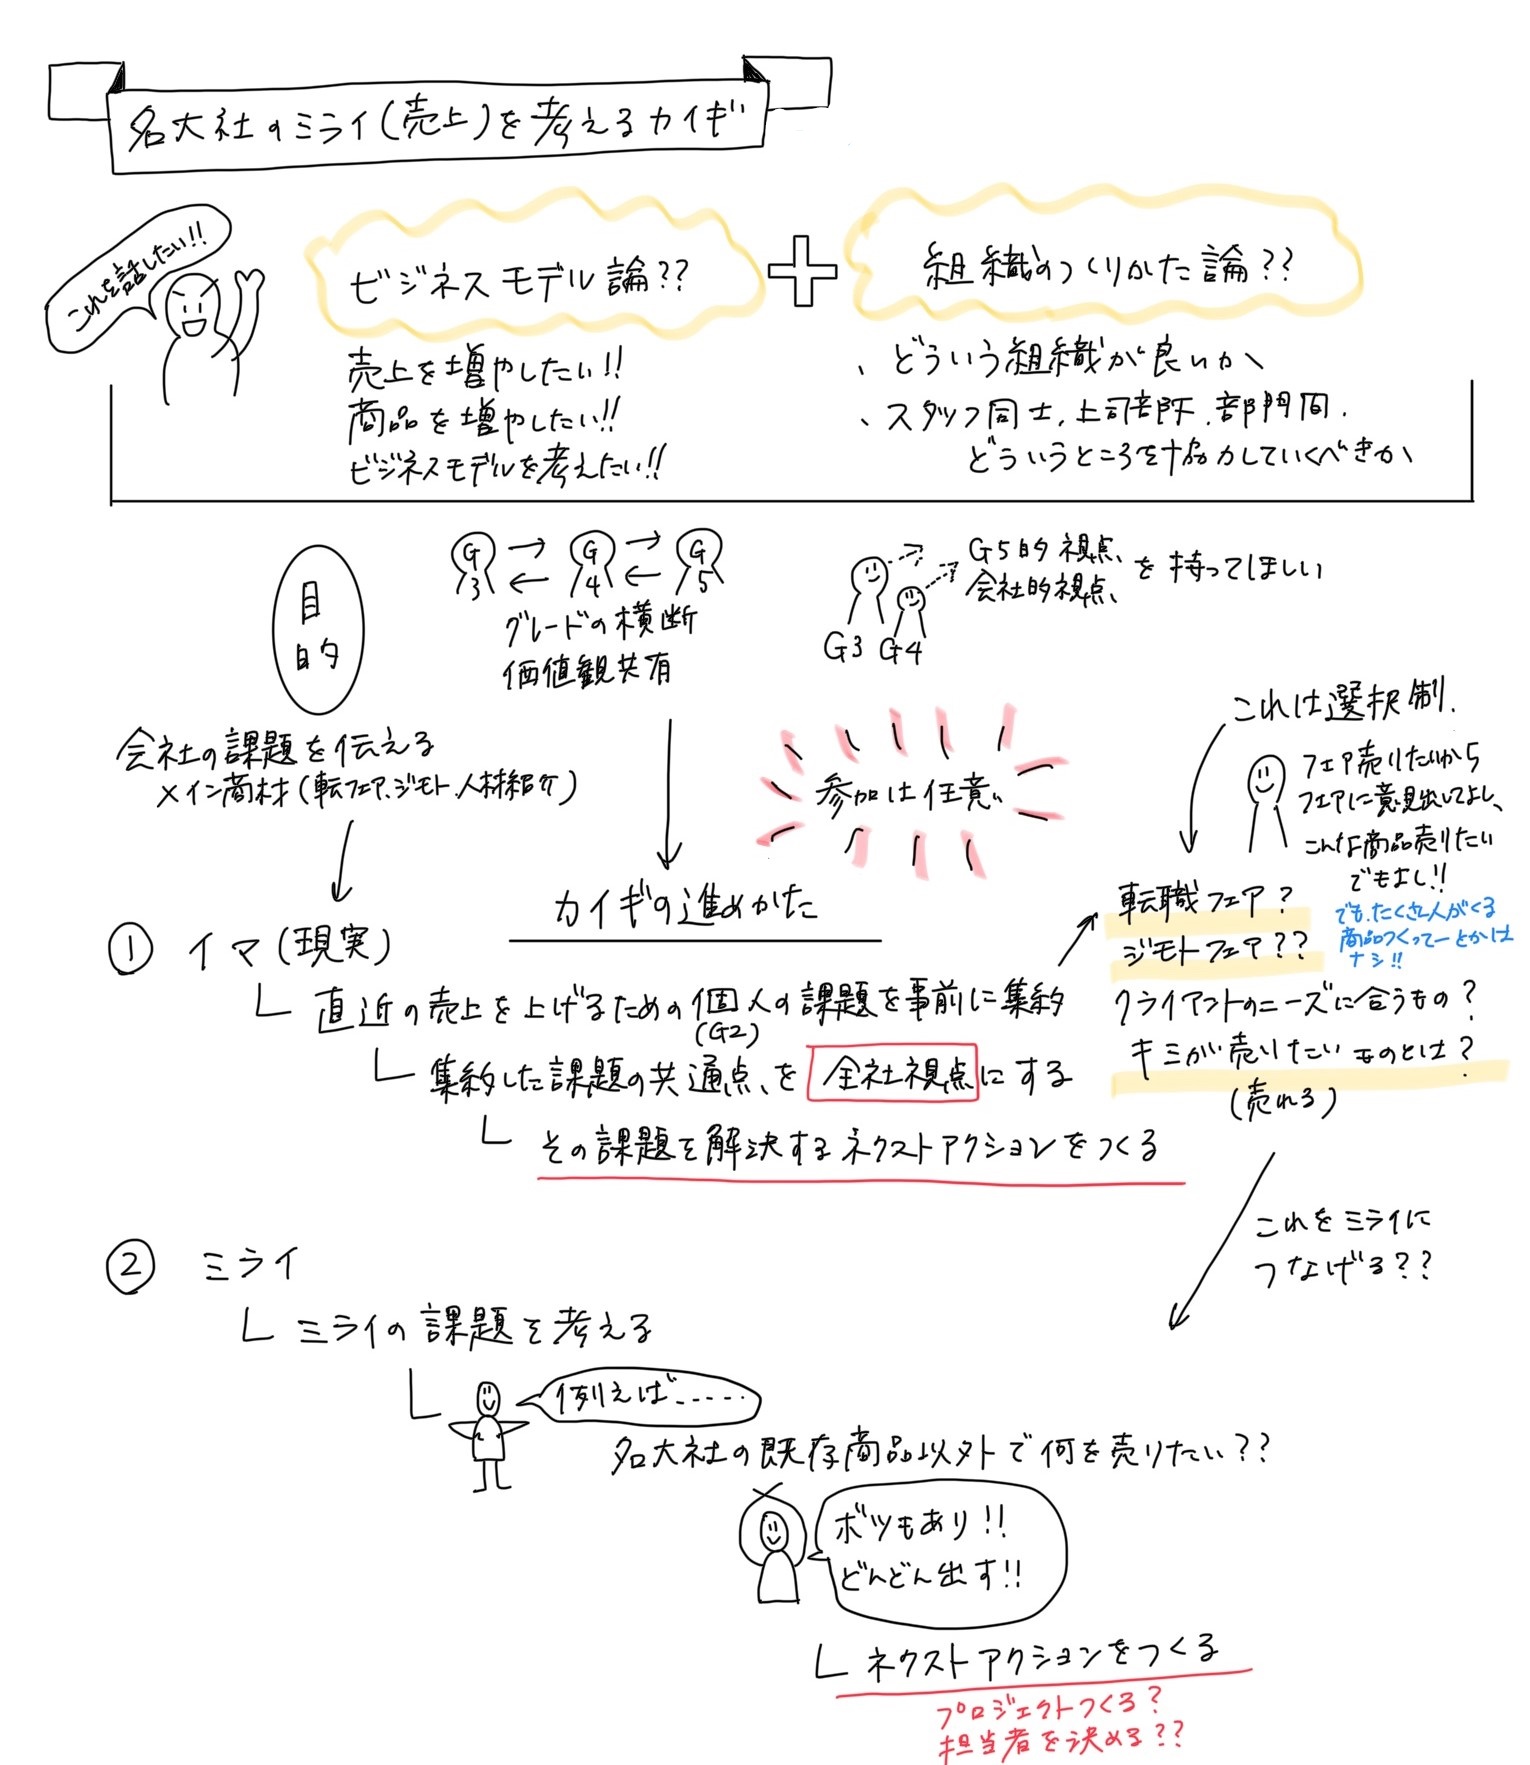 名大社のミライ(売上)を考えるカイギ
これを話したい!!
ビジネスモデル論??
組織のつくりかた論??
売上を増やしたい!!
商品を増やしたい!!
ビジネスモデルを考えたい!!
、どういう組織が良いか
、スタッフ同士,上司部下,部門間,
どういうところを協力していくべきか
目
的
G
3
G
4
G
5
グレードの横断
価値観共有
G3
G4
G5的視点
会社的視点
を持ってほしい
会社の課題を伝える
メイン商材(転フェア、ジモト、人材紹介)
参加は任意
これは選択制.
フェア売りたいから
フェアに意見出してよし、
こんな商品売りたい
でもよし!!
でも、たくさん人がくる
商品つくってーとかは
ナシ!!
カイギの進めかた
転職フェア?
ジモトフェア??
クライアントのニーズに合うもの?
キミが売りたいものとは?
(売れる)
① イマ(現実)
直近の売上を上げるための個人の課題を事前に集約
(G2)
集約した課題の共通点を全社視点にする
その課題を解決するネクストアクションをつくる
これをミライに
つなげる??
② ミライ
ミライの課題を考える
例えば.....
名大社の既存商品以外で何を売りたい??
ボツもあり!!
どんどん出す!!
ネクストアクションをつくる
プロジェクトつくる?
担当者を決める??